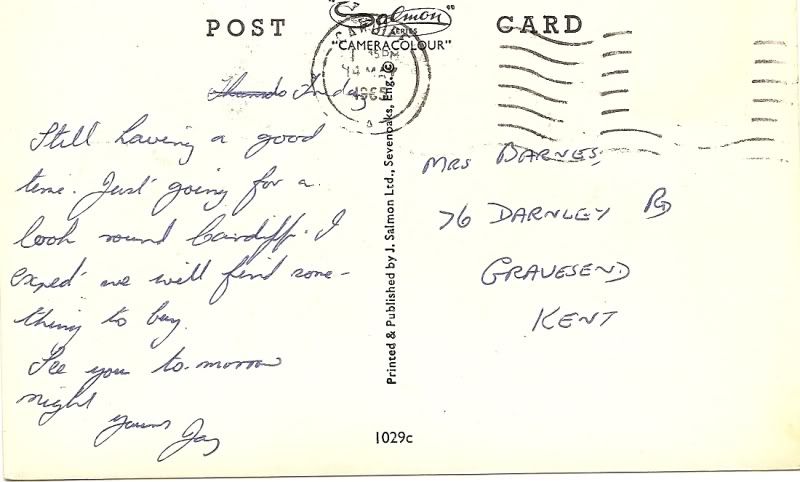 POST CARD
"Salmon"
SERIES
"CAMERACOLOUR"
CARDIFF
14 MAY
Friday
Still having a good
time. Just going for a
look round Cardiff. I
expect we will find some-
thing to buy.
See you to-morrow
night
yours Joy
MRS BARNES,
76 DARNLEY RD
GRAVESEND
KENT
Printed & Published by J. Salmon Ltd., Sevenoaks, Eng. ©
1029c